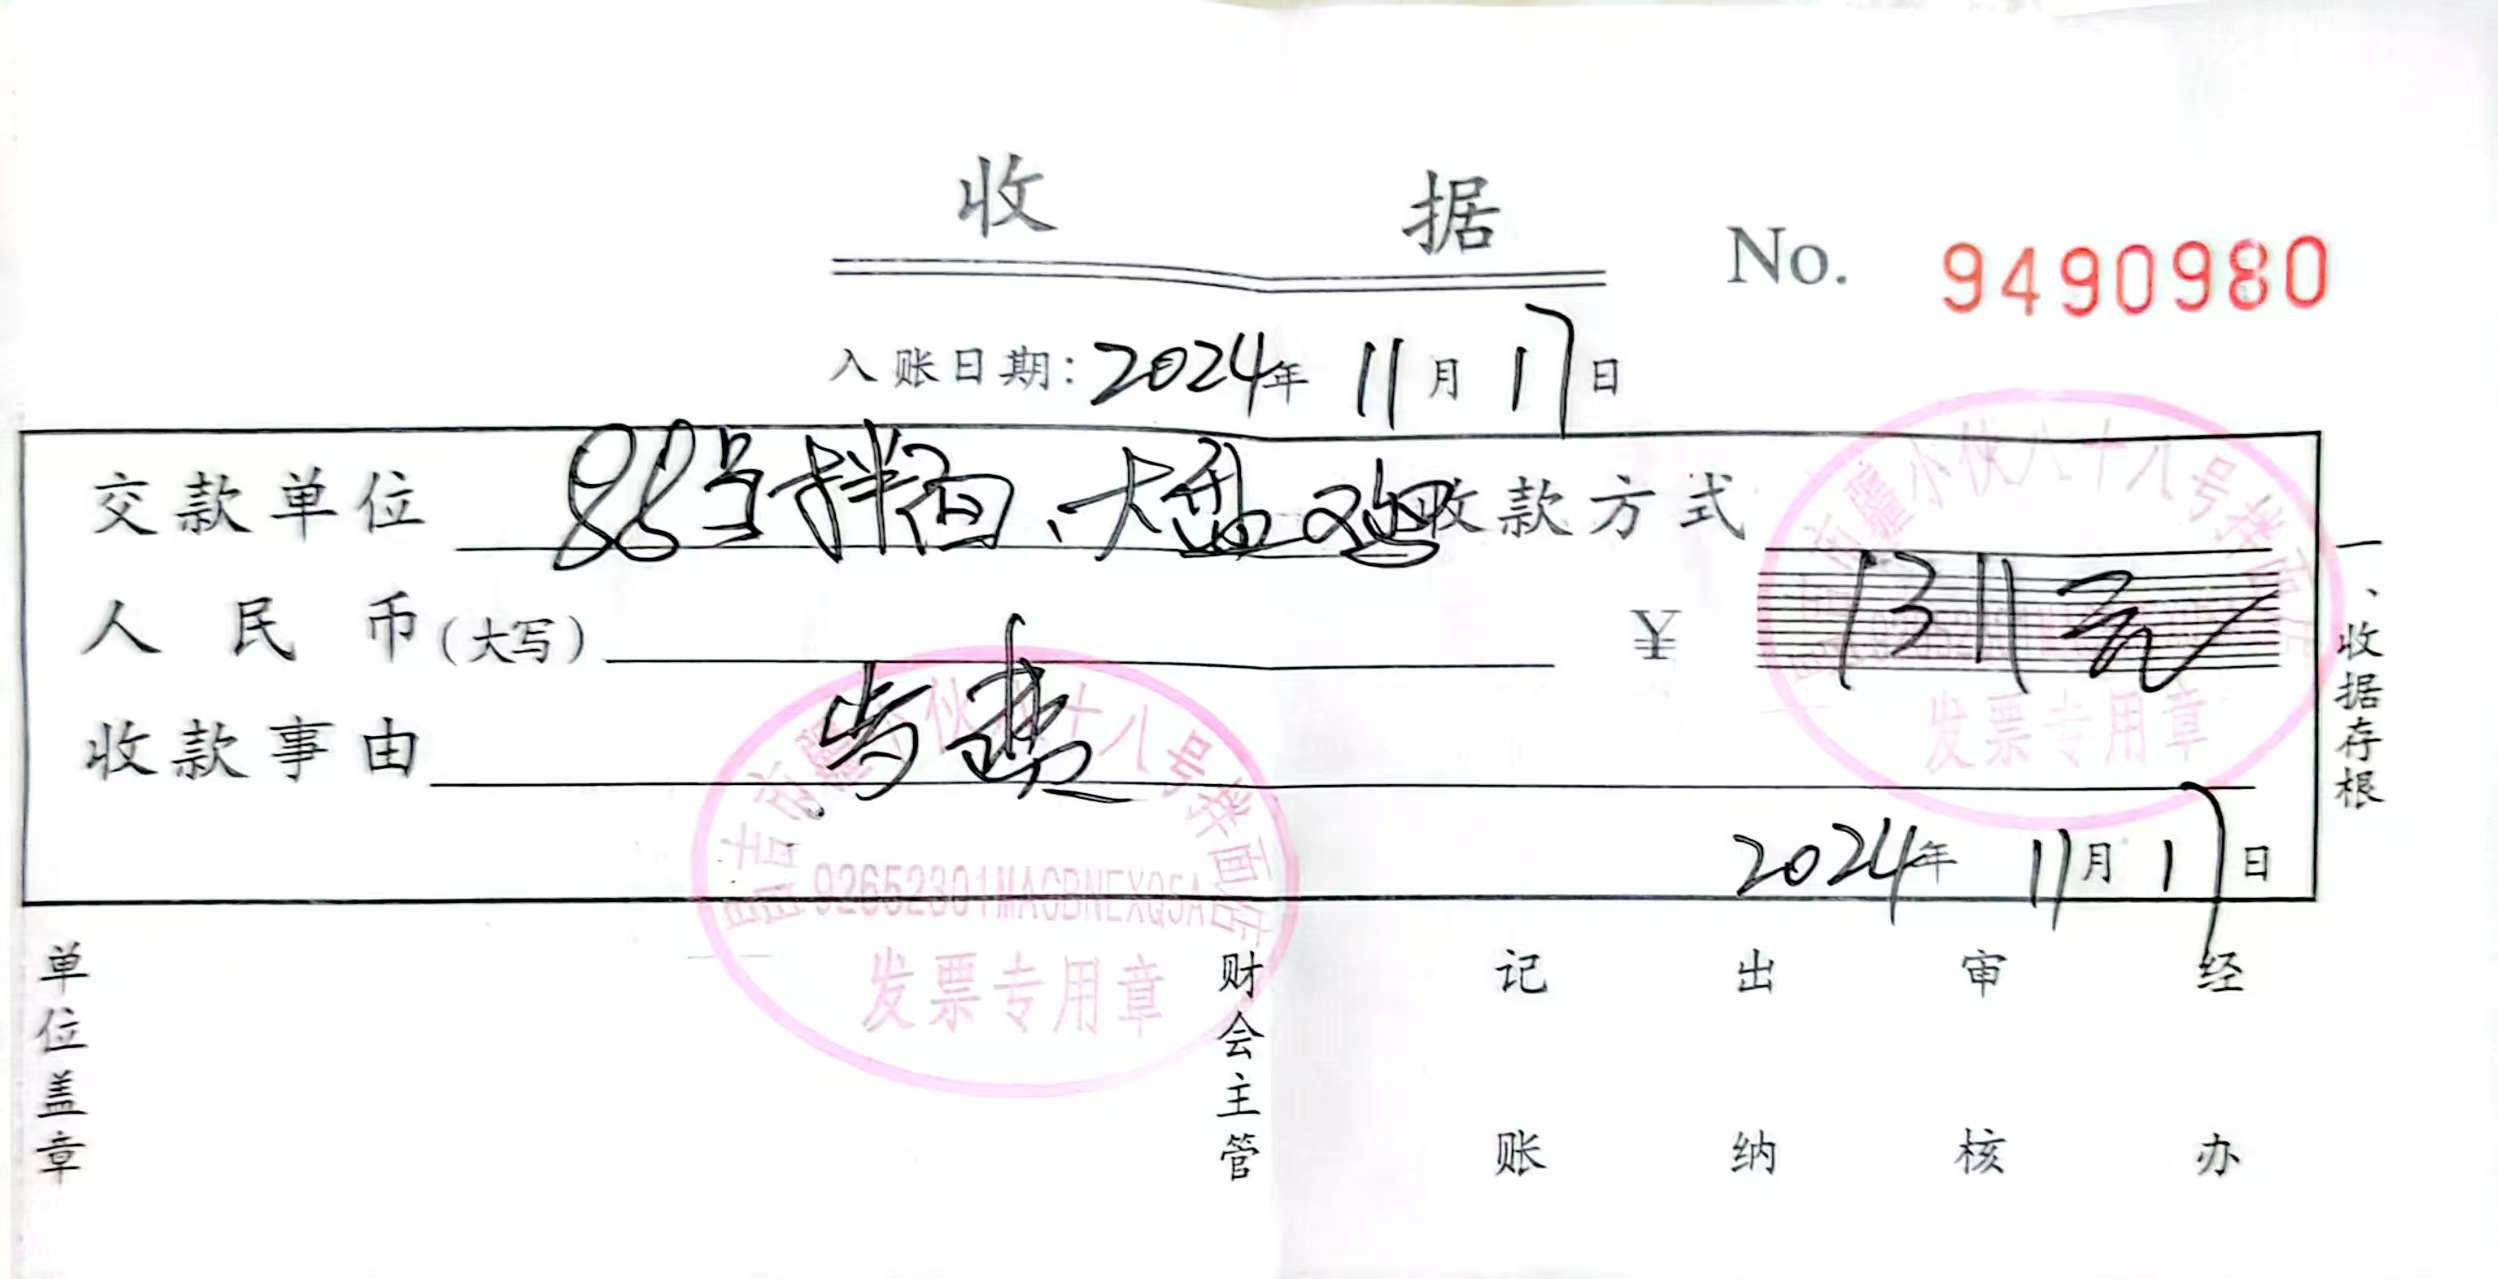 收 据
No. 9490980
入账日期: 2024年 11月 17日
交款单位 88号拌面、大盘鸡 收款方式
人民币(大写) ¥ 1311元
收款事由 餐费
2024年 11月 17日
一、收据存根
昌吉市疆小伙八十八号拌面店
92652301MACBNEXQ5A
发票专用章
昌吉市疆小伙八十八号拌面店
发票专用章
单位盖章 财会主管 记账 出纳 审核 经办